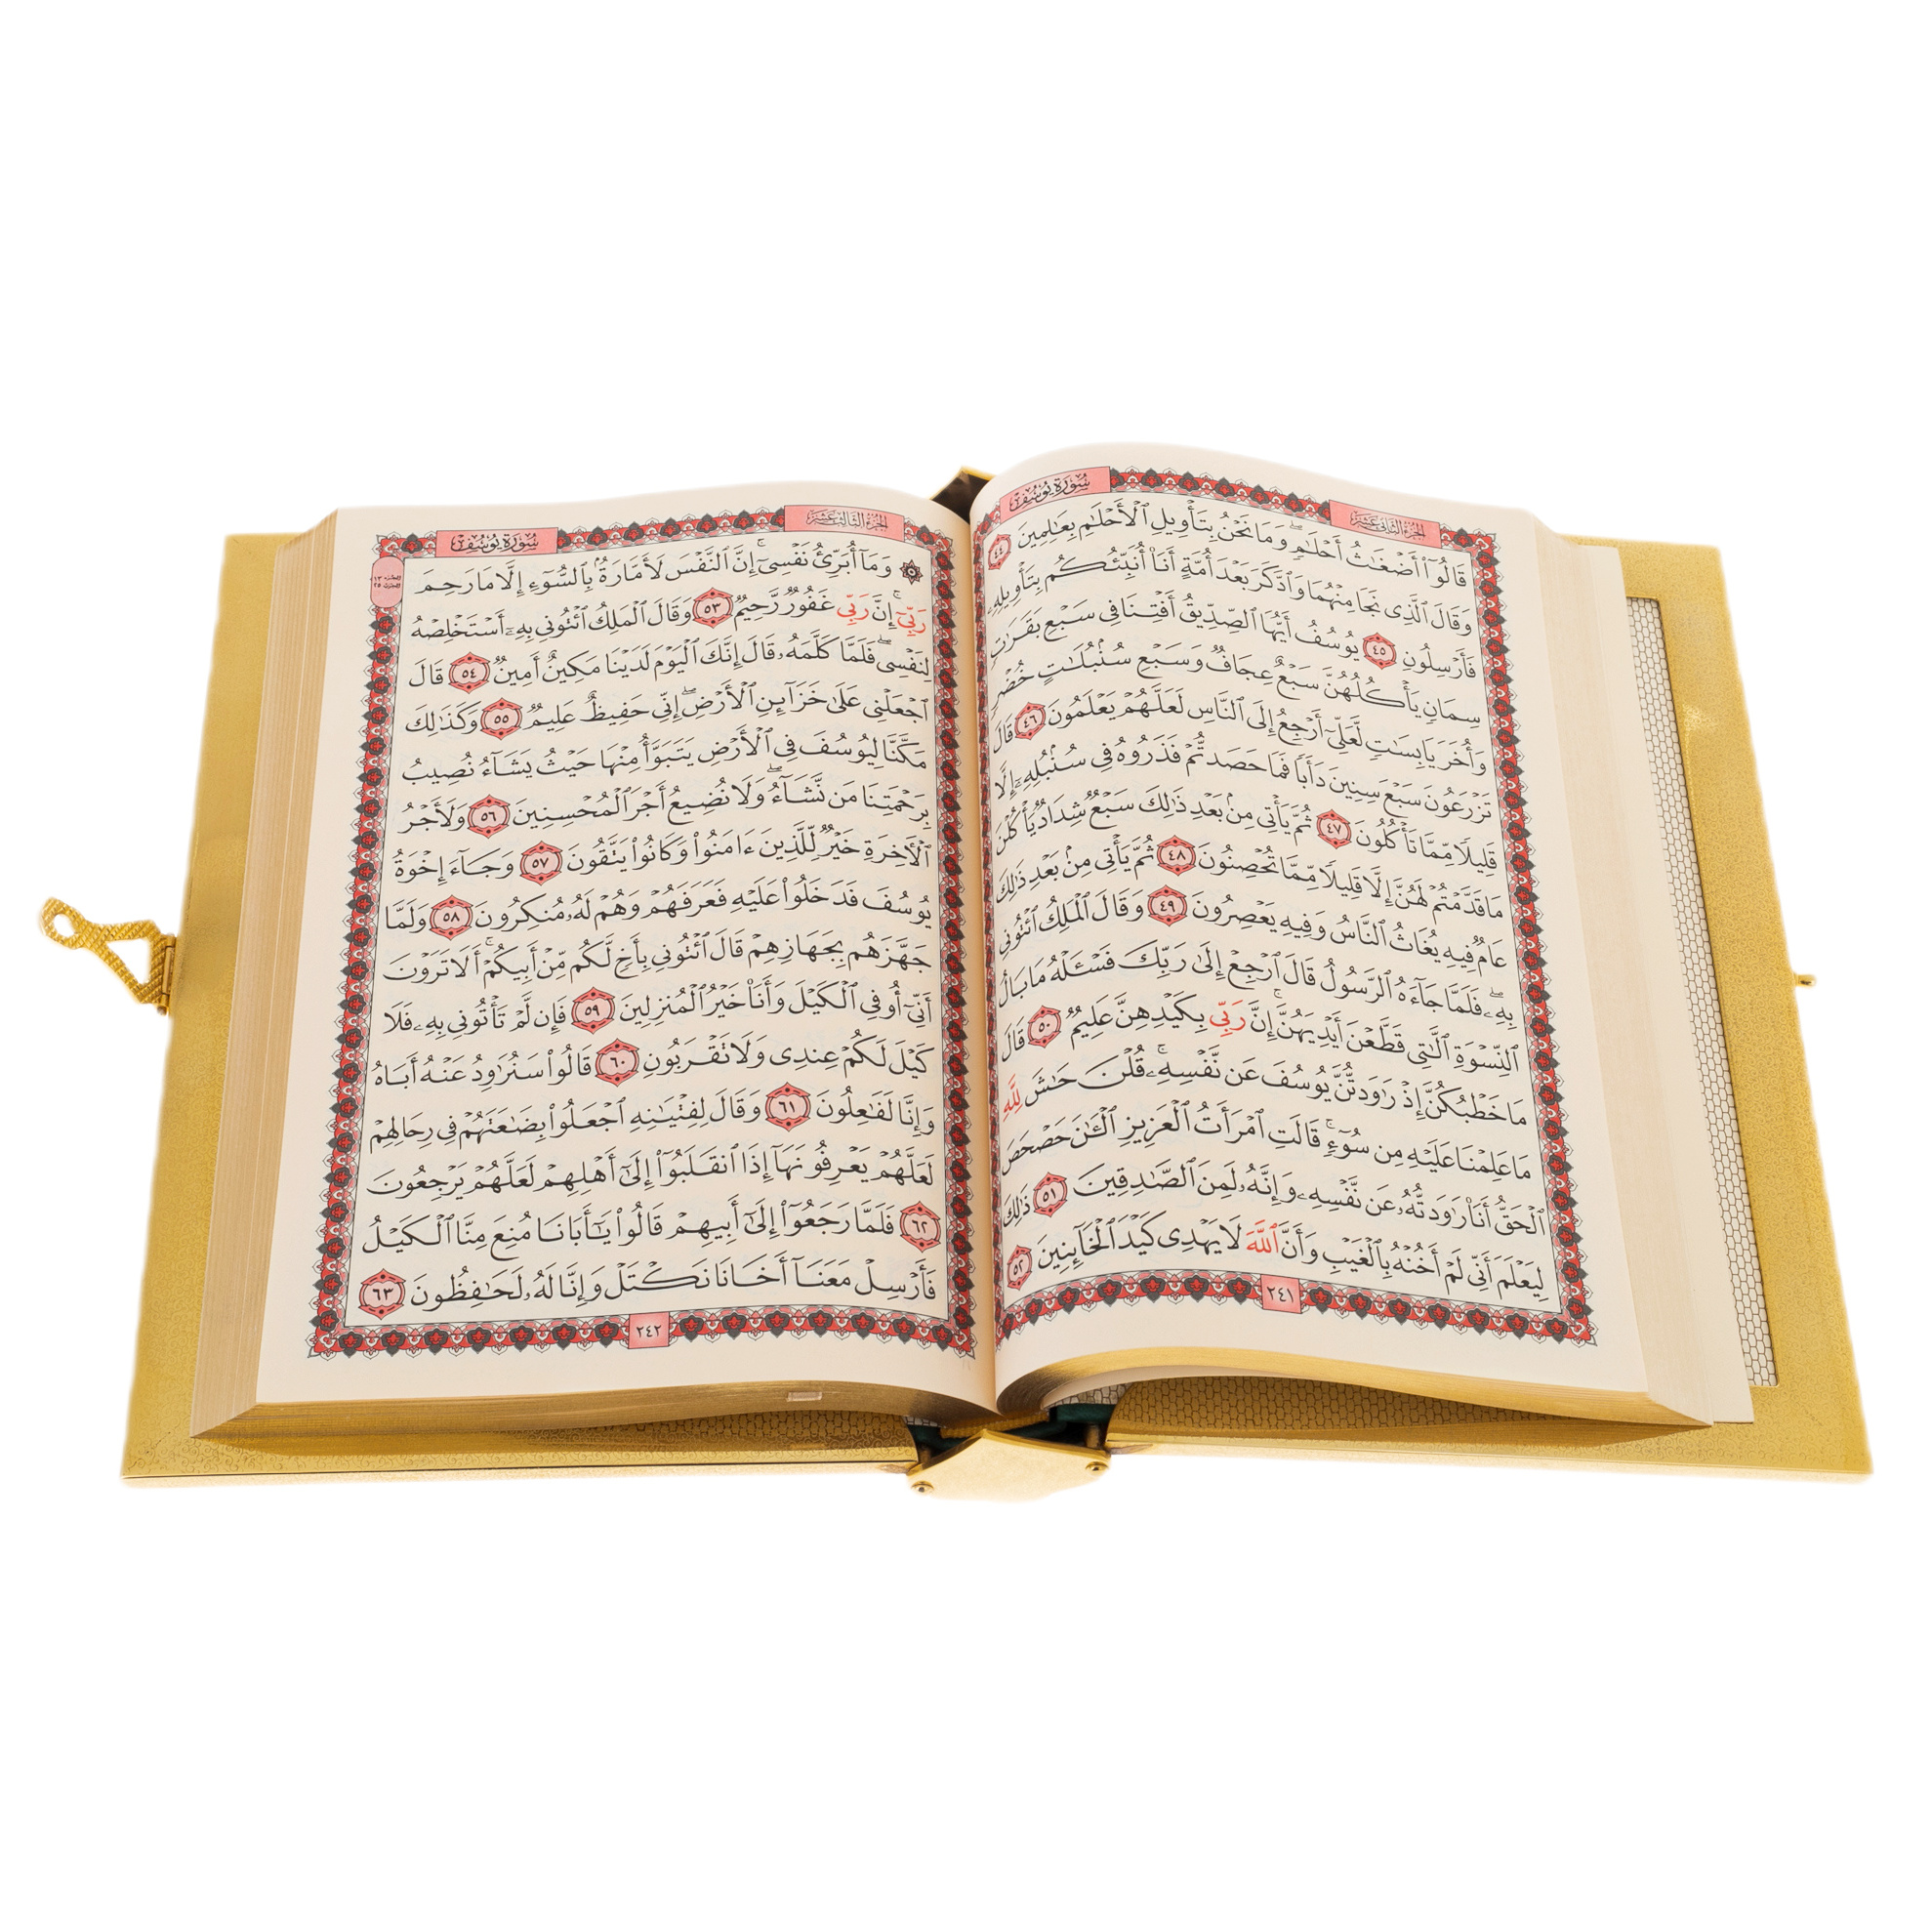 سُورَةُ يُوسُفَ
الجُزْءُ الثَّانِي عَشَرَ
قَالُوٓا۟ أَضْغَٰثُ أَحْلَٰمٍۢ ۖ وَمَا نَحْنُ بِتَأْوِيلِ ٱلْأَحْلَٰمِ بِعَٰلِمِينَ ٤٤
وَقَالَ ٱلَّذِى نَجَا مِنْهُمَا وَٱدَّكَرَ بَعْدَ أُمَّةٍ أَنَا۠ أُنَبِّئُكُم بِتَأْوِيلِهِۦ
فَأَرْسِلُونِ ٤٥ يُوسُفُ أَيُّهَا ٱلصِّدِّيقُ أَفْتِنَا فِى سَبْعِ بَقَرَٰتٍۢ
سِمَانٍۢ يَأْكُلُهُنَّ سَبْعٌ عِجَافٌۭ وَسَبْعِ سُنۢبُلَٰتٍ خُضْرٍۢ
وَأُخَرَ يَابِسَٰتٍۢ لَّعَلِّىٓ أَرْجِعُ إِلَى ٱلنَّاسِ لَعَلَّهُمْ يَعْلَمُونَ ٤٦ قَالَ
تَزْرَعُونَ سَبْعَ سِنِينَ دَأَبًۭا فَمَا حَصَدتُّمْ فَذَرُوهُ فِى سُنۢبُلِهِۦٓ إِلَّا
قَلِيلًۭا مِّمَّا تَأْكُلُونَ ٤٧ ثُمَّ يَأْتِى مِنۢ بَعْدِ ذَٰلِكَ سَبْعٌۭ شِدَادٌۭ يَأْكُلْنَ
مَا قَدَّمْتُمْ لَهُنَّ إِلَّا قَلِيلًۭا مِّمَّا تُحْصِنُونَ ٤٨ ثُمَّ يَأْتِى مِنۢ بَعْدِ ذَٰلِكَ
عَامٌۭ فِيهِ يُغَاثُ ٱلنَّاسُ وَفِيهِ يَعْصِرُونَ ٤٩ وَقَالَ ٱلْمَلِكُ ٱئْتُونِى
بِهِۦ ۖ فَلَمَّا جَآءَهُ ٱلرَّسُولُ قَالَ ٱرْجِعْ إِلَىٰ رَبِّكَ فَسْـَٔلْهُ مَا بَالُ
ٱلنِّسْوَةِ ٱلَّٰتِى قَطَّعْنَ أَيْدِيَهُنَّ ۚ إِنَّ رَبِّى بِكَيْدِهِنَّ عَلِيمٌۭ ٥٠ قَالَ
مَا خَطْبُكُنَّ إِذْ رَٰوَدتُّنَّ يُوسُفَ عَن نَّفْسِهِۦ ۚ قُلْنَ حَٰشَ لِلَّهِ
مَا عَلِمْنَا عَلَيْهِ مِن سُوٓءٍۢ ۚ قَالَتِ ٱمْرَأَتُ ٱلْعَزِيزِ ٱلْـَٰٔنَ حَصْحَصَ
ٱلْحَقُّ أَنَا۠ رَٰوَدتُّهُۥ عَن نَّفْسِهِۦ وَإِنَّهُۥ لَمِنَ ٱلصَّٰدِقِينَ ٥١ ذَٰلِكَ
لِيَعْلَمَ أَنِّى لَمْ أَخُنْهُ بِٱلْغَيْبِ وَأَنَّ ٱللَّهَ لَا يَهْدِى كَيْدَ ٱلْخَآئِنِينَ ٥٢
٢٤١
سُورَةُ يُوسُفَ
الجُزْءُ الثَّالِثَ عَشَرَ
وَمَآ أُبَرِّئُ نَفْسِىٓ ۚ إِنَّ ٱلنَّفْسَ لَأَمَّارَةٌۢ بِٱلسُّوٓءِ إِلَّا مَا رَحِمَ
رَبِّىٓ ۚ إِنَّ رَبِّى غَفُورٌۭ رَّحِيمٌۭ ٥٣ وَقَالَ ٱلْمَلِكُ ٱئْتُونِى بِهِۦٓ أَسْتَخْلِصْهُ
لِنَفْسِى ۖ فَلَمَّا كَلَّمَهُۥ قَالَ إِنَّكَ ٱلْيَوْمَ لَدَيْنَا مَكِينٌ أَمِينٌۭ ٥٤ قَالَ
ٱجْعَلْنِى عَلَىٰ خَزَآئِنِ ٱلْأَرْضِ ۖ إِنِّى حَفِيظٌ عَلِيمٌۭ ٥٥ وَكَذَٰلِكَ
مَكَّنَّا لِيُوسُفَ فِى ٱلْأَرْضِ يَتَبَوَّأُ مِنْهَا حَيْثُ يَشَآءُ ۚ نُصِيبُ
بِرَحْمَتِنَا مَن نَّشَآءُ ۖ وَلَا نُضِيعُ أَجْرَ ٱلْمُحْسِنِينَ ٥٦ وَلَأَجْرُ
ٱلْـَٔاخِرَةِ خَيْرٌۭ لِّلَّذِينَ ءَامَنُوا۟ وَكَانُوا۟ يَتَّقُونَ ٥٧ وَجَآءَ إِخْوَةُ
يُوسُفَ فَدَخَلُوا۟ عَلَيْهِ فَعَرَفَهُمْ وَهُمْ لَهُۥ مُنكِرُونَ ٥٨ وَلَمَّا
جَهَّزَهُم بِجَهَازِهِمْ قَالَ ٱئْتُونِى بِأَخٍۢ لَّكُم مِّنْ أَبِيكُمْ ۚ أَلَا تَرَوْنَ
أَنِّىٓ أُوفِى ٱلْكَيْلَ وَأَنَا۠ خَيْرُ ٱلْمُنزِلِينَ ٥٩ فَإِن لَّمْ تَأْتُونِى بِهِۦ فَلَا
كَيْلَ لَكُمْ عِندِى وَلَا تَقْرَبُونِ ٦٠ قَالُوا۟ سَنُرَٰوِدُ عَنْهُ أَبَاهُ
وَإِنَّا لَفَٰعِلُونَ ٦١ وَقَالَ لِفِتْيَٰنِهِ ٱجْعَلُوا۟ بِضَٰعَتَهُمْ فِى رِحَالِهِمْ
لَعَلَّهُمْ يَعْرِفُونَهَآ إِذَا ٱنقَلَبُوٓا۟ إِلَىٰٓ أَهْلِهِمْ لَعَلَّهُمْ يَرْجِعُونَ
٦٢ فَلَمَّا رَجَعُوٓا۟ إِلَىٰٓ أَبِيهِمْ قَالُوا۟ يَٰٓأَبَانَا مُنِعَ مِنَّا ٱلْكَيْلُ
فَأَرْسِلْ مَعَنَآ أَخَانَا نَكْتَلْ وَإِنَّا لَهُۥ لَحَٰفِظُونَ ٦٣
٢٤٢